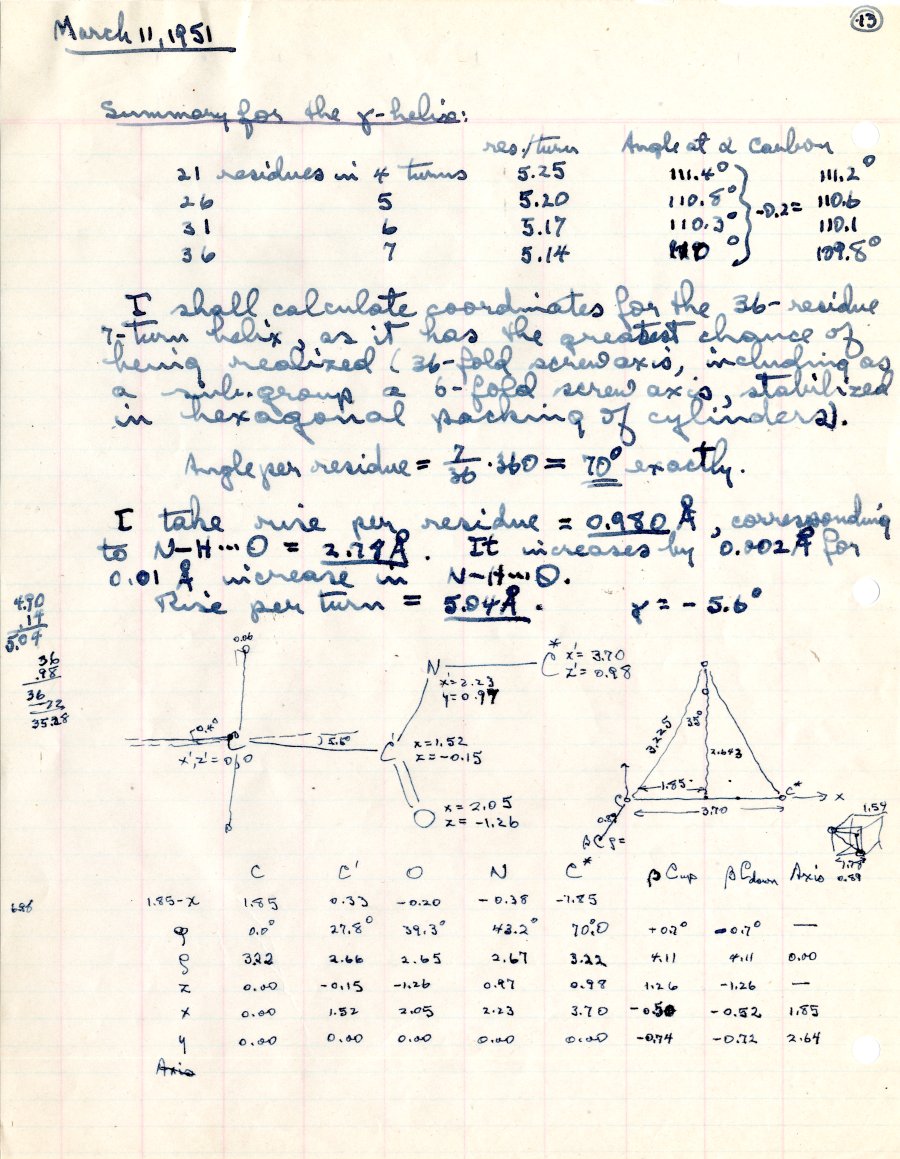 March 11, 1951
13
Summary for the γ-helix:
res./turn Angle at α carbon
21 residues in 4 turns 5.25 111.4° 111.2°
26 5 5.20 110.8° -0.2= 110.6
31 6 5.17 110.3° 110.1
36 7 5.14 110° 109.8°
I shall calculate coordinates for the 36-residue
7-turn helix, as it has the greatest chance of
being realized (36-fold screw axis, including as
a sub-group a 6-fold screw axis, stabilized
in hexagonal packing of cylinders).
Angle per residue = 7/36 · 360 = 70° exactly.
I take rise per residue = 0.980 Å, corresponding
to N–H···O = 2.79 Å. It increases by 0.002 Å for
0.01 Å increase in N–H···O.
Rise per turn = 5.04 Å. γ = -5.6°
4.90
.14
5.04
36
.98
36
22
35.28
0.06
0.4°
C
x',z' = 0,0
5.6°
N
x'=2.23
y=0.97
C* x'= 3.70
z'= 0.98
C' x=1.52
z=-0.15
O x= 2.05
z= -1.26
3.225
35°
2.643
1.85
C
C*
x
3.70
0.89
βC ρ=
1.54
0.89
C C' O N C* βC up βC down Axis
1.85-x 1.85 0.33 -0.20 -0.38 -1.85
φ 0.0° 27.8° 39.3° 43.2° 70.0 +0.7° -0.7° —
ρ 3.22 2.66 2.65 2.67 3.22 4.11 4.11 0.00
z 0.00 -0.15 -1.26 0.97 0.98 1.26 -1.26 —
x 0.00 1.52 2.05 2.23 3.70 -0.50 -0.52 1.85
y 0.00 0.00 0.00 0.00 0.00 -0.74 -0.72 2.64
Axis